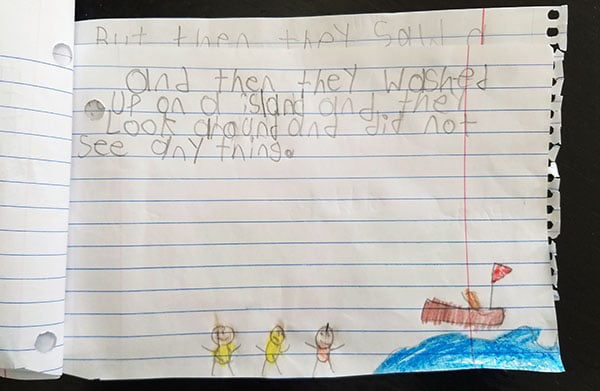 But then they saw d
and then they washed
up on a island and they
Look around and did not
see any thing.